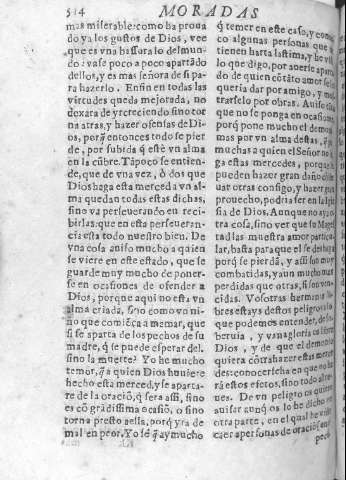 514 MORADAS
mas miserable: como ha proua
do ya los gustos de Dios, vee
que es vna bassura lo del mun
do: vase poco a poco apartãdo
dellos, y es mas señora de si pa
ra hazerlo. Enfin en todas las
virtudes queda mejorada, no
dexara de yr creciendo sino tor
na atras, y hazer ofensas de Di
os, porq̃ entonces todo se pier
de, por subida q̃ estè vn alma
en la cũbre. Tãpoco se entien-
de, que de vna vez, ò dos que
Dios haga esta merced a vn al
ma quedan todas estas dichas,
sino va perseuerando en reci-
birlas: que en esta perseueran-
cia esta todo nuestro bien. De
vna cosa auiso mucho a quien
se viere en este estado, que se
guarde muy mucho de poner-
se en ocasiones de ofender a
Dios, porque aqui no esta vn
alma criada, sino como vn ni-
ño que comiẽça a mamar, que
si se aparta de los pechos de su
madre, q̃ se puede esperar del,
sino la muerte? Yo he mucho
temor, q̃ a quien Dios huuiere
hecho esta merced, y se aparta-
re de la oraciõ, q̃ sera assi, sino
es cõ grãdissima ocasiõ, o sino
torna presto a ella, porq̃ yra de
mal en peor. Yo sè q̃ ay mucho
q̃ temer en este caso, y conoz
co algunas personas que me
tienen harta lastima, y he visto
lo que digo, por auerse aparta
do de quien cõ tãto amor se le
queria dar por amigo, y mos
trarselo por obras. Auiso tãto
que no se ponga en ocasiones,
porq̃ pone mucho el demonio
mas por vn alma destas, q̃ por
muchas a quien el Señor no ha
ga estas mercedes, porque le
pueden hazer gran daño en lle
uar otras consigo, y hazer gran
prouecho, podria ser en la Igle
sia de Dios. Aunque no aya o
tra cosa, sino ver que su Mages
tad las muestra amor particu-
lar, basta para que el se deshaga
porq̃ se pierdã, y assi son muy
combatidas, y aun mucho mas
perdidas que otras, si son ven-
cidas. Vosotras hermanas li-
bres estays destos peligros a lo
que podemos entender, de so-
beruia, y vanagloria os libre
Dios, y de que el demonio
quiera cõtrahazer estas merce
des: conocerseha en que no ha
rà estos efetos, sino todo al re
ues. De vn peligro os quiero
auisar aunq̃ os lo he dicho en
otra parte, en el qual he visto
caer a personas de oraciõ, en
pecò